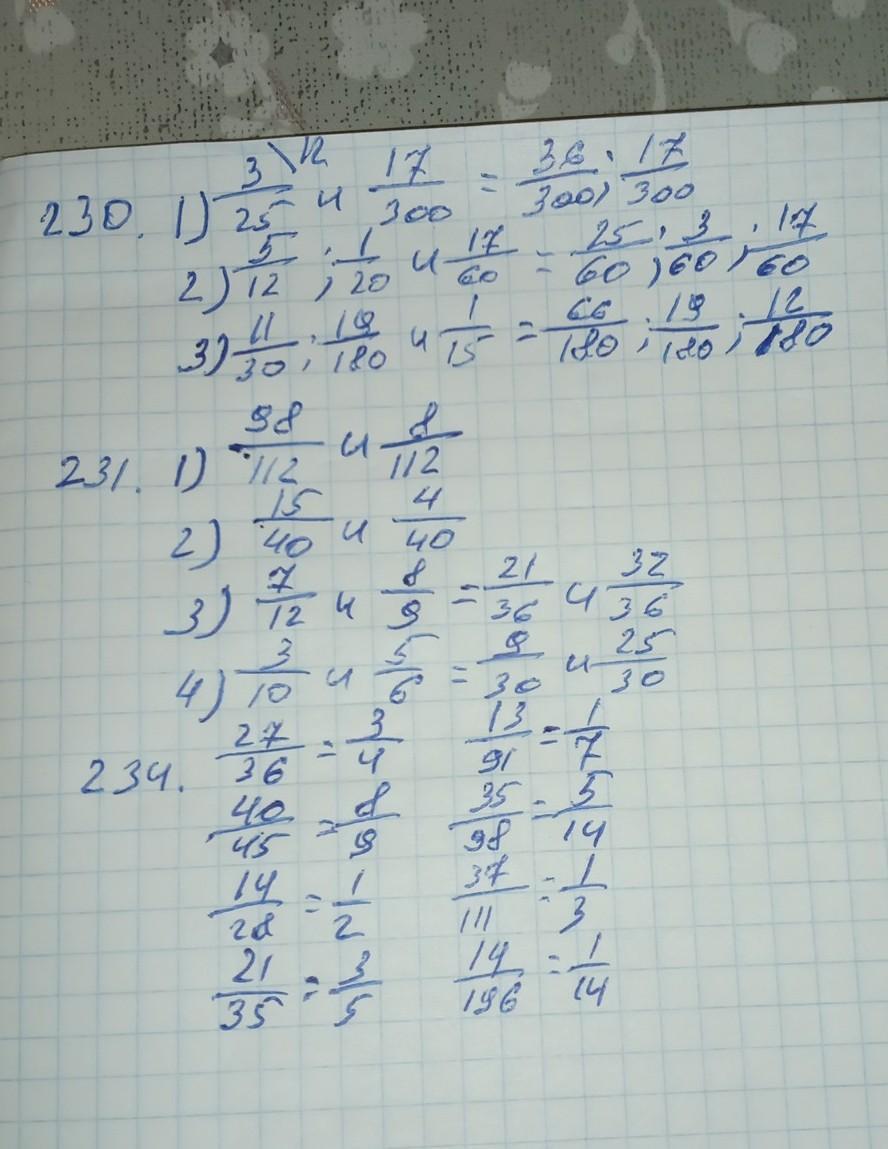 230. 1) 3/25 \12 и 17/300 = 36/300; 17/300
2) 5/12; 1/20 и 17/60 = 25/60; 3/60; 17/60
3) 11/30; 19/180 и 1/15 = 66/180; 19/180; 12/180
231. 1) 98/112 и 8/112
2) 15/40 и 4/40
3) 7/12 и 8/9 = 21/36 и 32/36
4) 3/10 и 5/6 = 9/30 и 25/30
234. 27/36 = 3/4 13/91 = 1/7
40/45 = 8/9 35/98 = 5/14
14/28 = 1/2 37/111 = 1/3
21/35 = 3/5 14/196 = 1/14